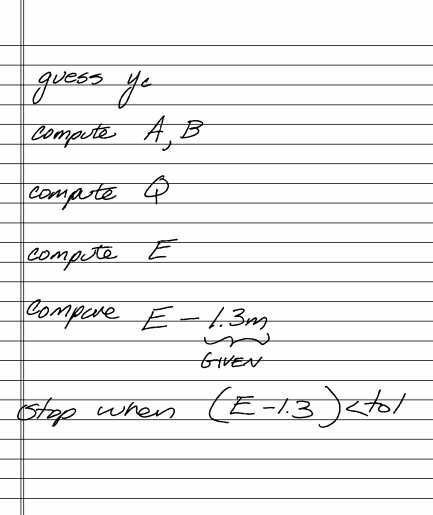 guess yc
compute A, B
compute Q
compute E
compare E - 1.3m
GIVEN
stop when (E-1.3)<tol